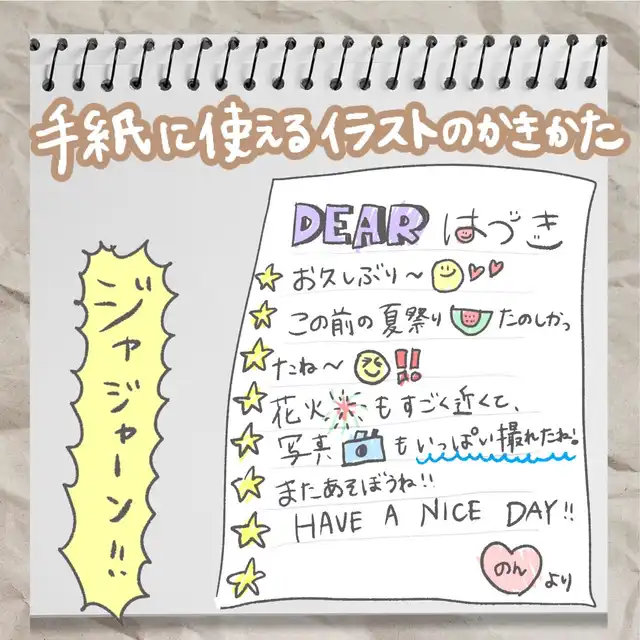 手紙に使えるイラストのかきかた
ジャジャーン!!
DEAR はづき
お久しぶり〜
この前の夏祭り たのしかっ
たね〜 !!
花火 もすごく近くて、
写真 もいっぱい撮れたね!
またあそぼうね!!
HAVE A NICE DAY!!
のん より